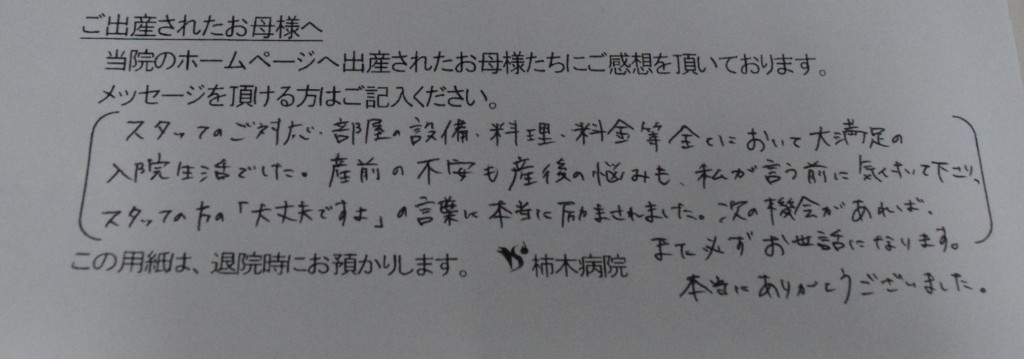 ご出産されたお母様へ
当院のホームページへ出産されたお母様たちにご感想を頂いております。
メッセージを頂ける方はご記入ください。
スタッフのご対応・部屋の設備・料理・料金等全てにおいて大満足の
入院生活でした。産前の不安も産後の悩みも、私が言う前に気付いて下さり、
スタッフの方の「大丈夫ですよ」の言葉に本当に励まされました。次の機会があれば、
また必ずお世話になります。
本当にありがとうございました。
この用紙は、退院時にお預かりします。 柿木病院